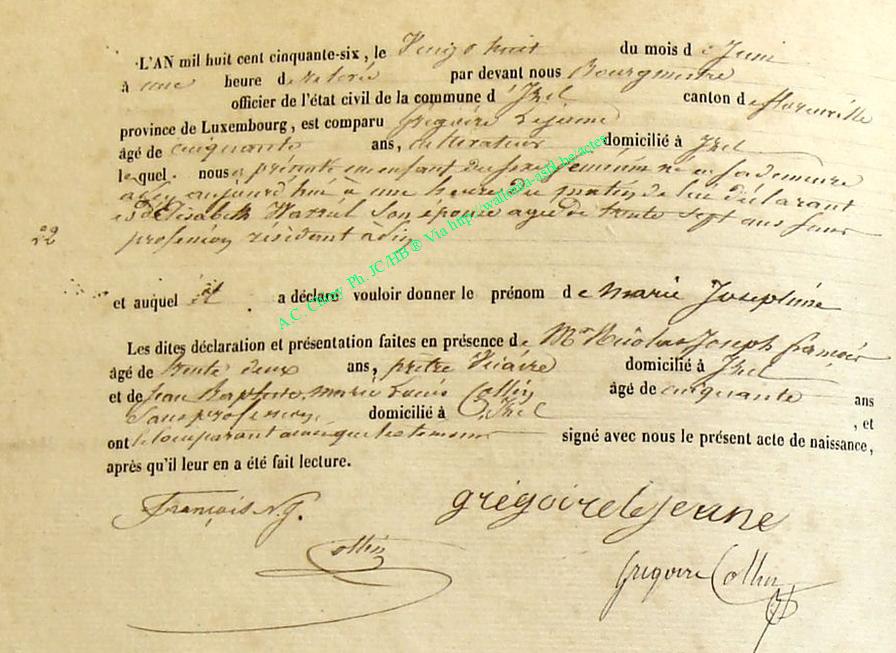 L'AN mil huit cent cinquante-six, le Vingt huit du mois de Juin
à une heure de relevée par devant nous Bourgmestre
officier de l'état civil de la commune d'Izel canton de florenville
province de Luxembourg, est comparu Grégoire Lejeune
âgé de cinquante ans, cultivateur domicilié à Izel
lequel nous a présenté un enfant du sexe féminin né en sa demeure
aujourd'hui a une heure du matin de lui déclarant
et d'Elisabeth son épouse agée de trente sept ans sans
profession résidant à Izel
22
et auquel il a déclaré vouloir donner le prénom de Marie Joséphine
Les dites déclaration et présentation faites en présence de Mr Nicolas Joseph françois
âgé de trente deux ans, prêtre Vicaire domicilié à Izel
et de Jean Baptiste marie Louis Collin âgé de cinquante ans
Sans profession domicilié à Izel , et
ont le comparant ainsi que les témoins signé avec nous le présent acte de naissance,
après qu'il leur en a été fait lecture.
François N.J.
grégoire lejeune
Collin
Grégoire Collin
A.C. Chiny Ph. JC/HB ® Via http://wallonia-asbl.be-actes